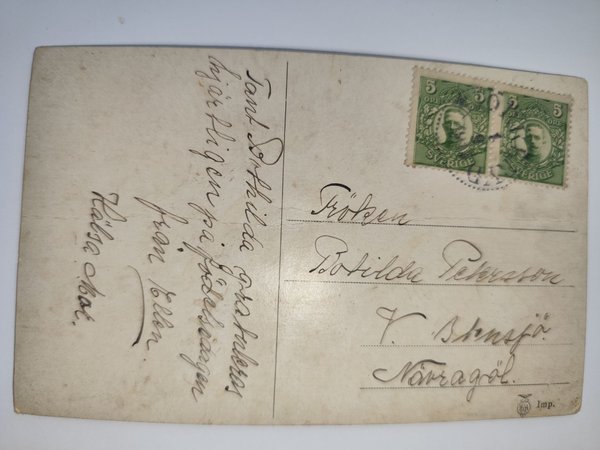 Tant Bothilda gratuleras
hjärtligen på födelsedagen
från Ellen.
Hälsa Mor.
5 5
ÖRE ÖRE
SVERIGE SVERIGE
Fröken
Botilda Petersson
V. Bensjö.
Nävragöl.
Imp.